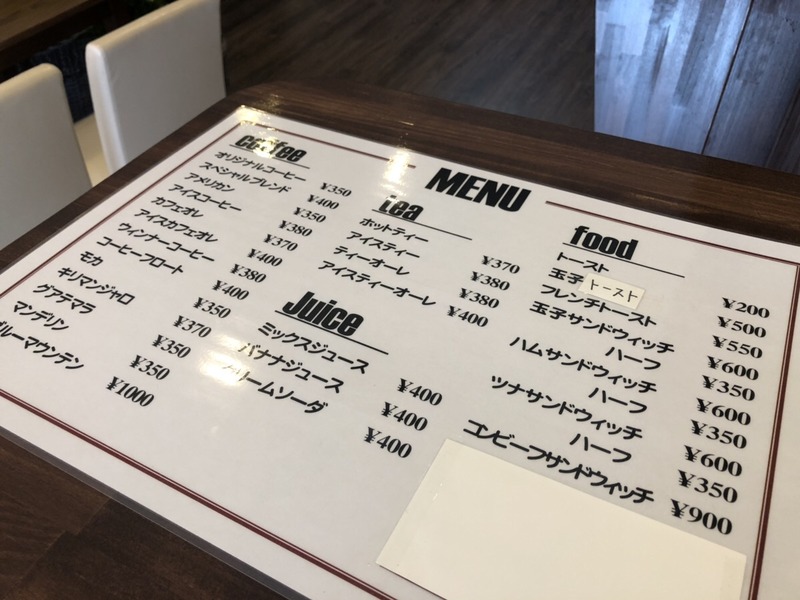 MENU
coffee
オリジナルコーヒー ¥350
スペシャルブレンド ¥400
アメリカン ¥350
アイスコーヒー ¥380
カフェオレ ¥370
アイスカフェオレ ¥400
ウィンナーコーヒー ¥380
コーヒーフロート ¥400
モカ ¥350
キリマンジャロ ¥370
グアテマラ ¥350
マンデリン ¥350
ブルーマウンテン ¥1000
tea
ホットティー ¥370
アイスティー ¥380
ティーオーレ ¥380
アイスティーオーレ ¥400
Juice
ミックスジュース ¥400
バナナジュース ¥400
クリームソーダ ¥400
food
トースト ¥200
玉子トースト ¥500
フレンチトースト ¥550
玉子サンドウィッチ ¥600
ハーフ ¥350
ハムサンドウィッチ ¥600
ハーフ ¥350
ツナサンドウィッチ ¥600
ハーフ ¥350
コンビーフサンドウィッチ ¥900